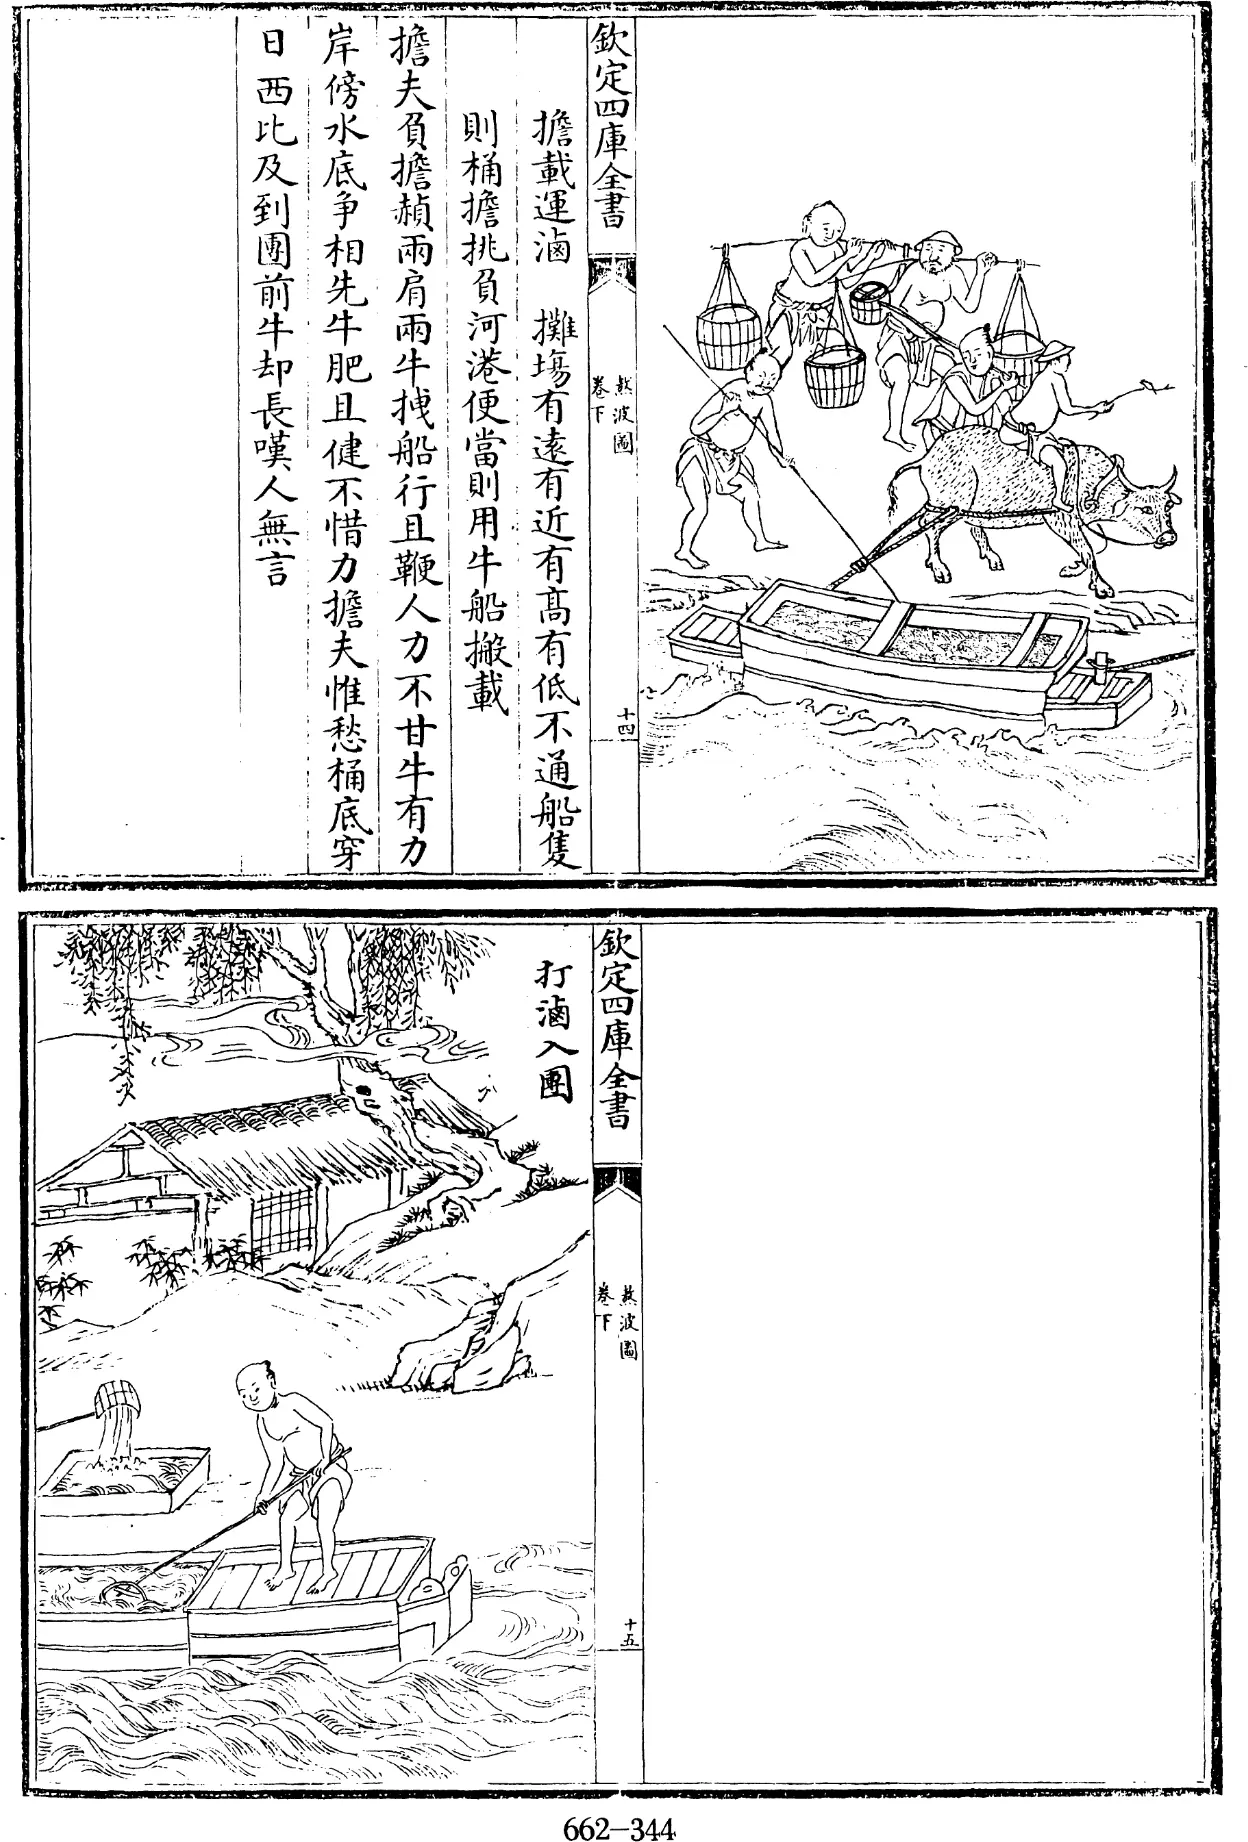 欽定四庫全書
熬波圖
卷下
十四
擔載運滷　攤塲有遠有近有髙有低不通船隻
則桶擔挑負河港便當則用牛船搬載
擔夫負擔赬兩肩兩牛拽船行且鞭人力不甘牛有力
岸傍水底争相先牛肥且健不惜力擔夫惟愁桶底穿
日西比及到團前牛却長嘆人無言
欽定四庫全書
熬波圖
卷下
十五
打滷入團
662-344